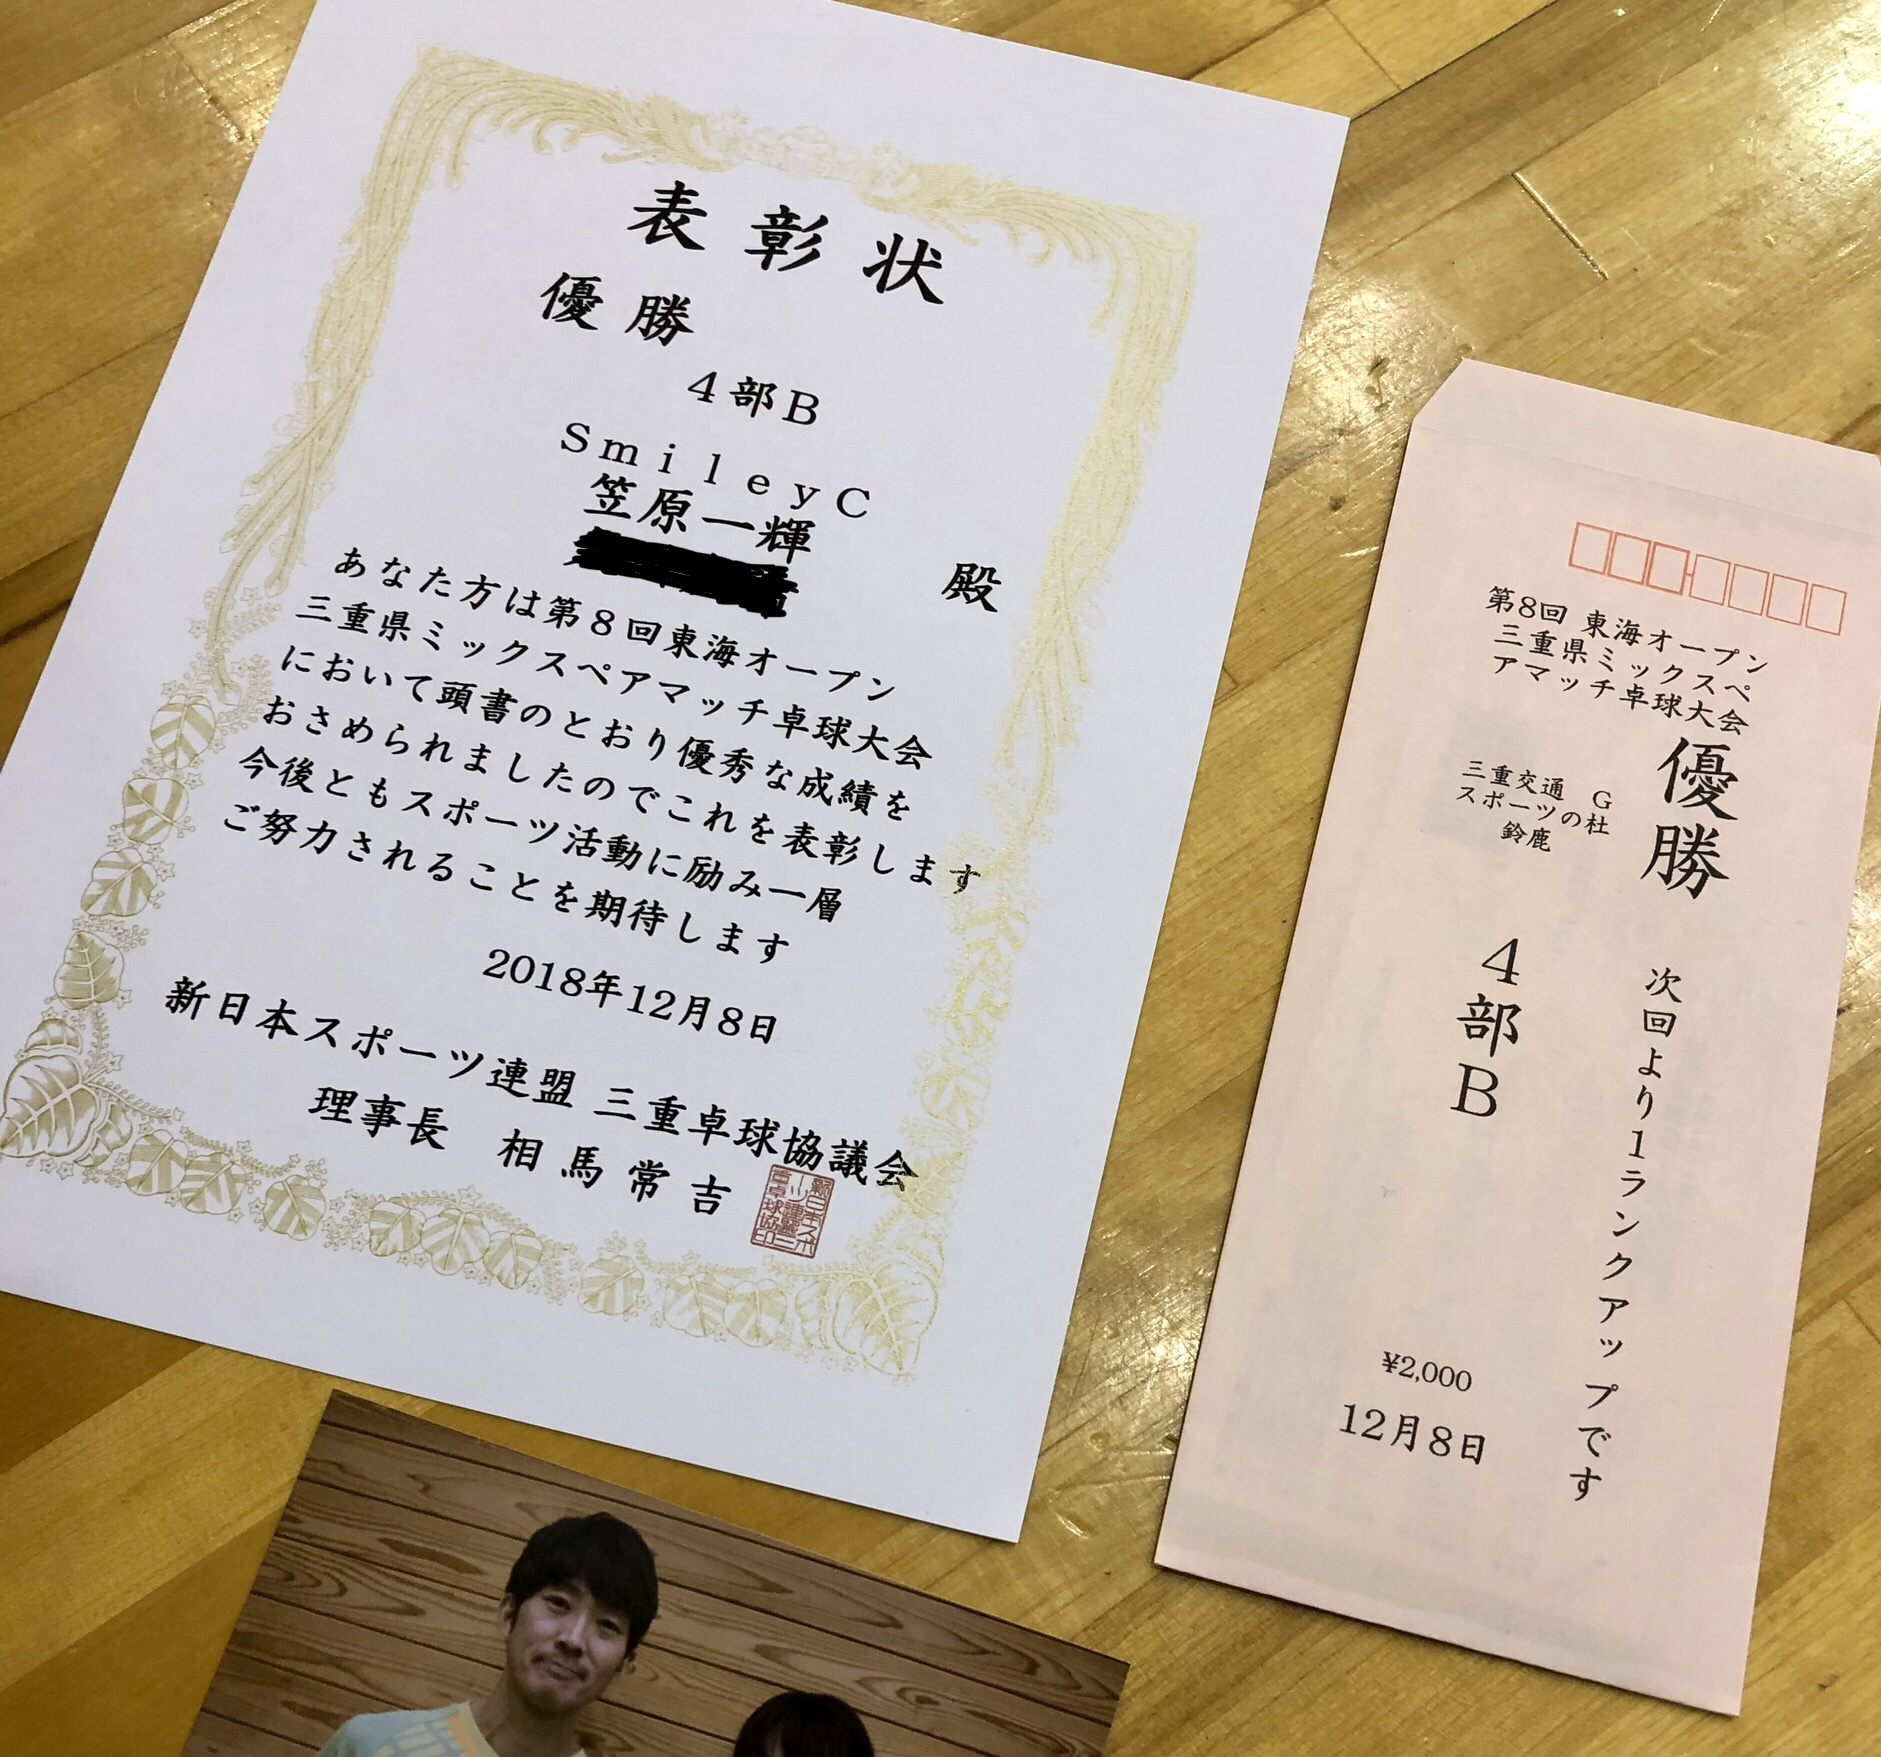 表彰状
優勝
4部B
SmileyC
笠原一輝
殿
あなた方は第8回東海オープン
三重県ミックスペアマッチ卓球大会
において頭書のとおり優秀な成績を
おさめられましたのでこれを表彰します
今後ともスポーツ活動に励み一層
ご努力されることを期待します
2018年12月8日
新日本スポーツ連盟 三重卓球協議会
理事長 相馬常吉
第8回 東海オープン
三重県ミックスペ
アマッチ卓球大会
優勝
三重交通 G
スポーツの杜
鈴鹿
次回より1ランクアップです
4部B
¥2,000
12月8日